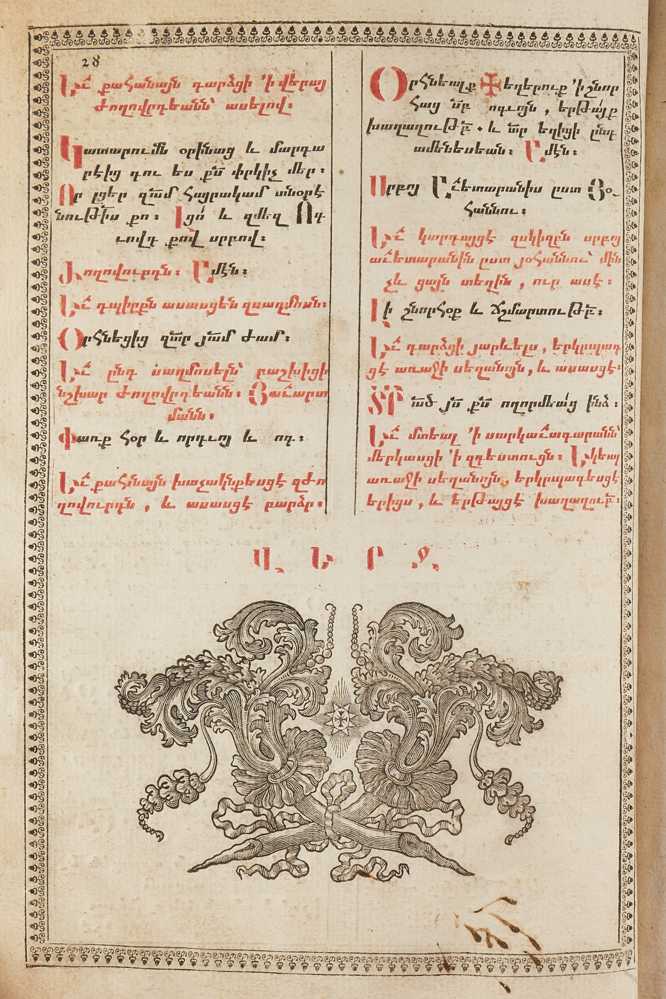 28
Եւ՟ քահանայն դարձցի ՚ի վերայ
ժողովրդեանն՝ ասելով.
Կատարումն օրինաց և մարգա
րէից դու ես ք՟ս փրկիչ մեր.
Որ լցեր զա՟մ հայրական տնօրէ
նութիս քո: Լցո՛ և զմեզ Հոգ
ւովդ քով սրբով.
Ժողովուրդն: Ամէն:
Եւ՟ դպիրքն ասասցեն զսաղմոսն:
Օրհնեցից զտ՟ր յա՟մ ժամ.
Եւ՟ ընդ սաղմոսելն՝ բաշխիցի
նշխար ժողովրդեանն: Յաւարտ
մանն:
Փառք հօր և որդւոյ և հգ.
Եւ՟ քահնայն խաչակնքեսցէ զժո
ղովուրդն, և ասասցէ բարձր:
Օրհնեալք ✠ եղերուք ՚ի շնոր
հաց ս՟ր հոգւոյն, երթայք
խաղաղութբ՟. և տ՟ր եղիցի ընդ
ամենեսեան: Ամէն:
Սրբոյ Աւետարանիս ըստ Յօ
հաննու:
Եւ՟ կարդայցէ զսկիզբն սրբոյ
աւետարանին ըստ յօհաննու՝ մին
չև ցայն տեղին, ուր ասէ:
Լի շնորհօք և ճշմարտութբ՟:
Եւ՟ դարձցի յարևելս, երկրպագ
ցէ առաջի սեղանոյն, և ասասցէ:
Տ՟ր ա՟ծ յ՟ս ք՟ս ողորմեաց ինձ:
Եւ՟ մտեալ ՚ի սարկաւագարանն՝
մերկասցի ՚ի զգեստուցն: Եկեալ
առաջի սեղանոյն, երկրպագեսցէ
երիցս, և երթայցէ խաղաղութբ՟:
Վ Ե Ր Ջ